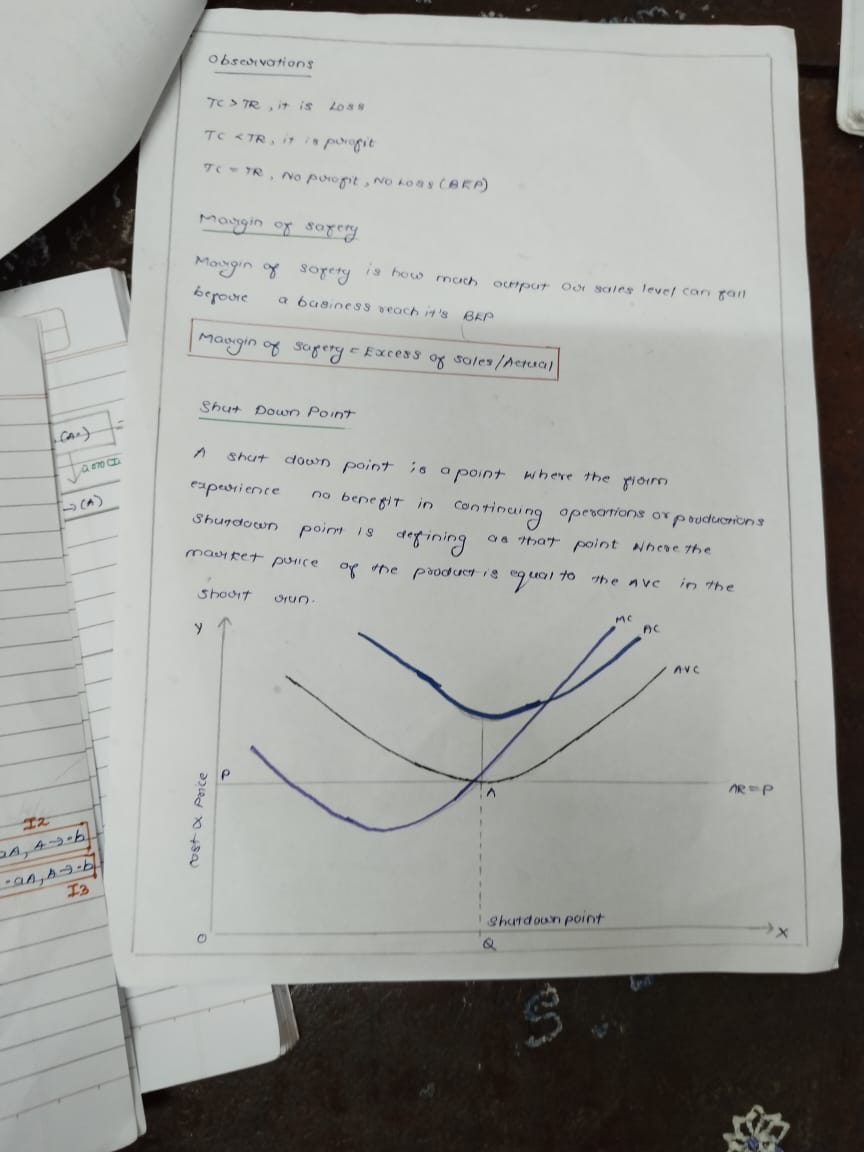 Observations
TC > TR, it is Loss
TC < TR, it is profit
TC = TR, No profit, No Loss (BEP)
Margin of safety
Margin of sofety is how much output our sales level can fall
before a business reach it's BEP
Margin of safety = Excess of sales/Actual
Shut Down Point
A shut down point is a point where the firm
experience no benefit in continuing operations or productions
Shutdown point is defining as that point where the
market price of the product is equal to the AVC in the
short run.
Y
MC
AC
AVC
P
A
AR = P
cost & Price
O
Shutdown point
Q
X
(A2)
→(A)
I2
aA, A→·b
·aA, A→·b
I3